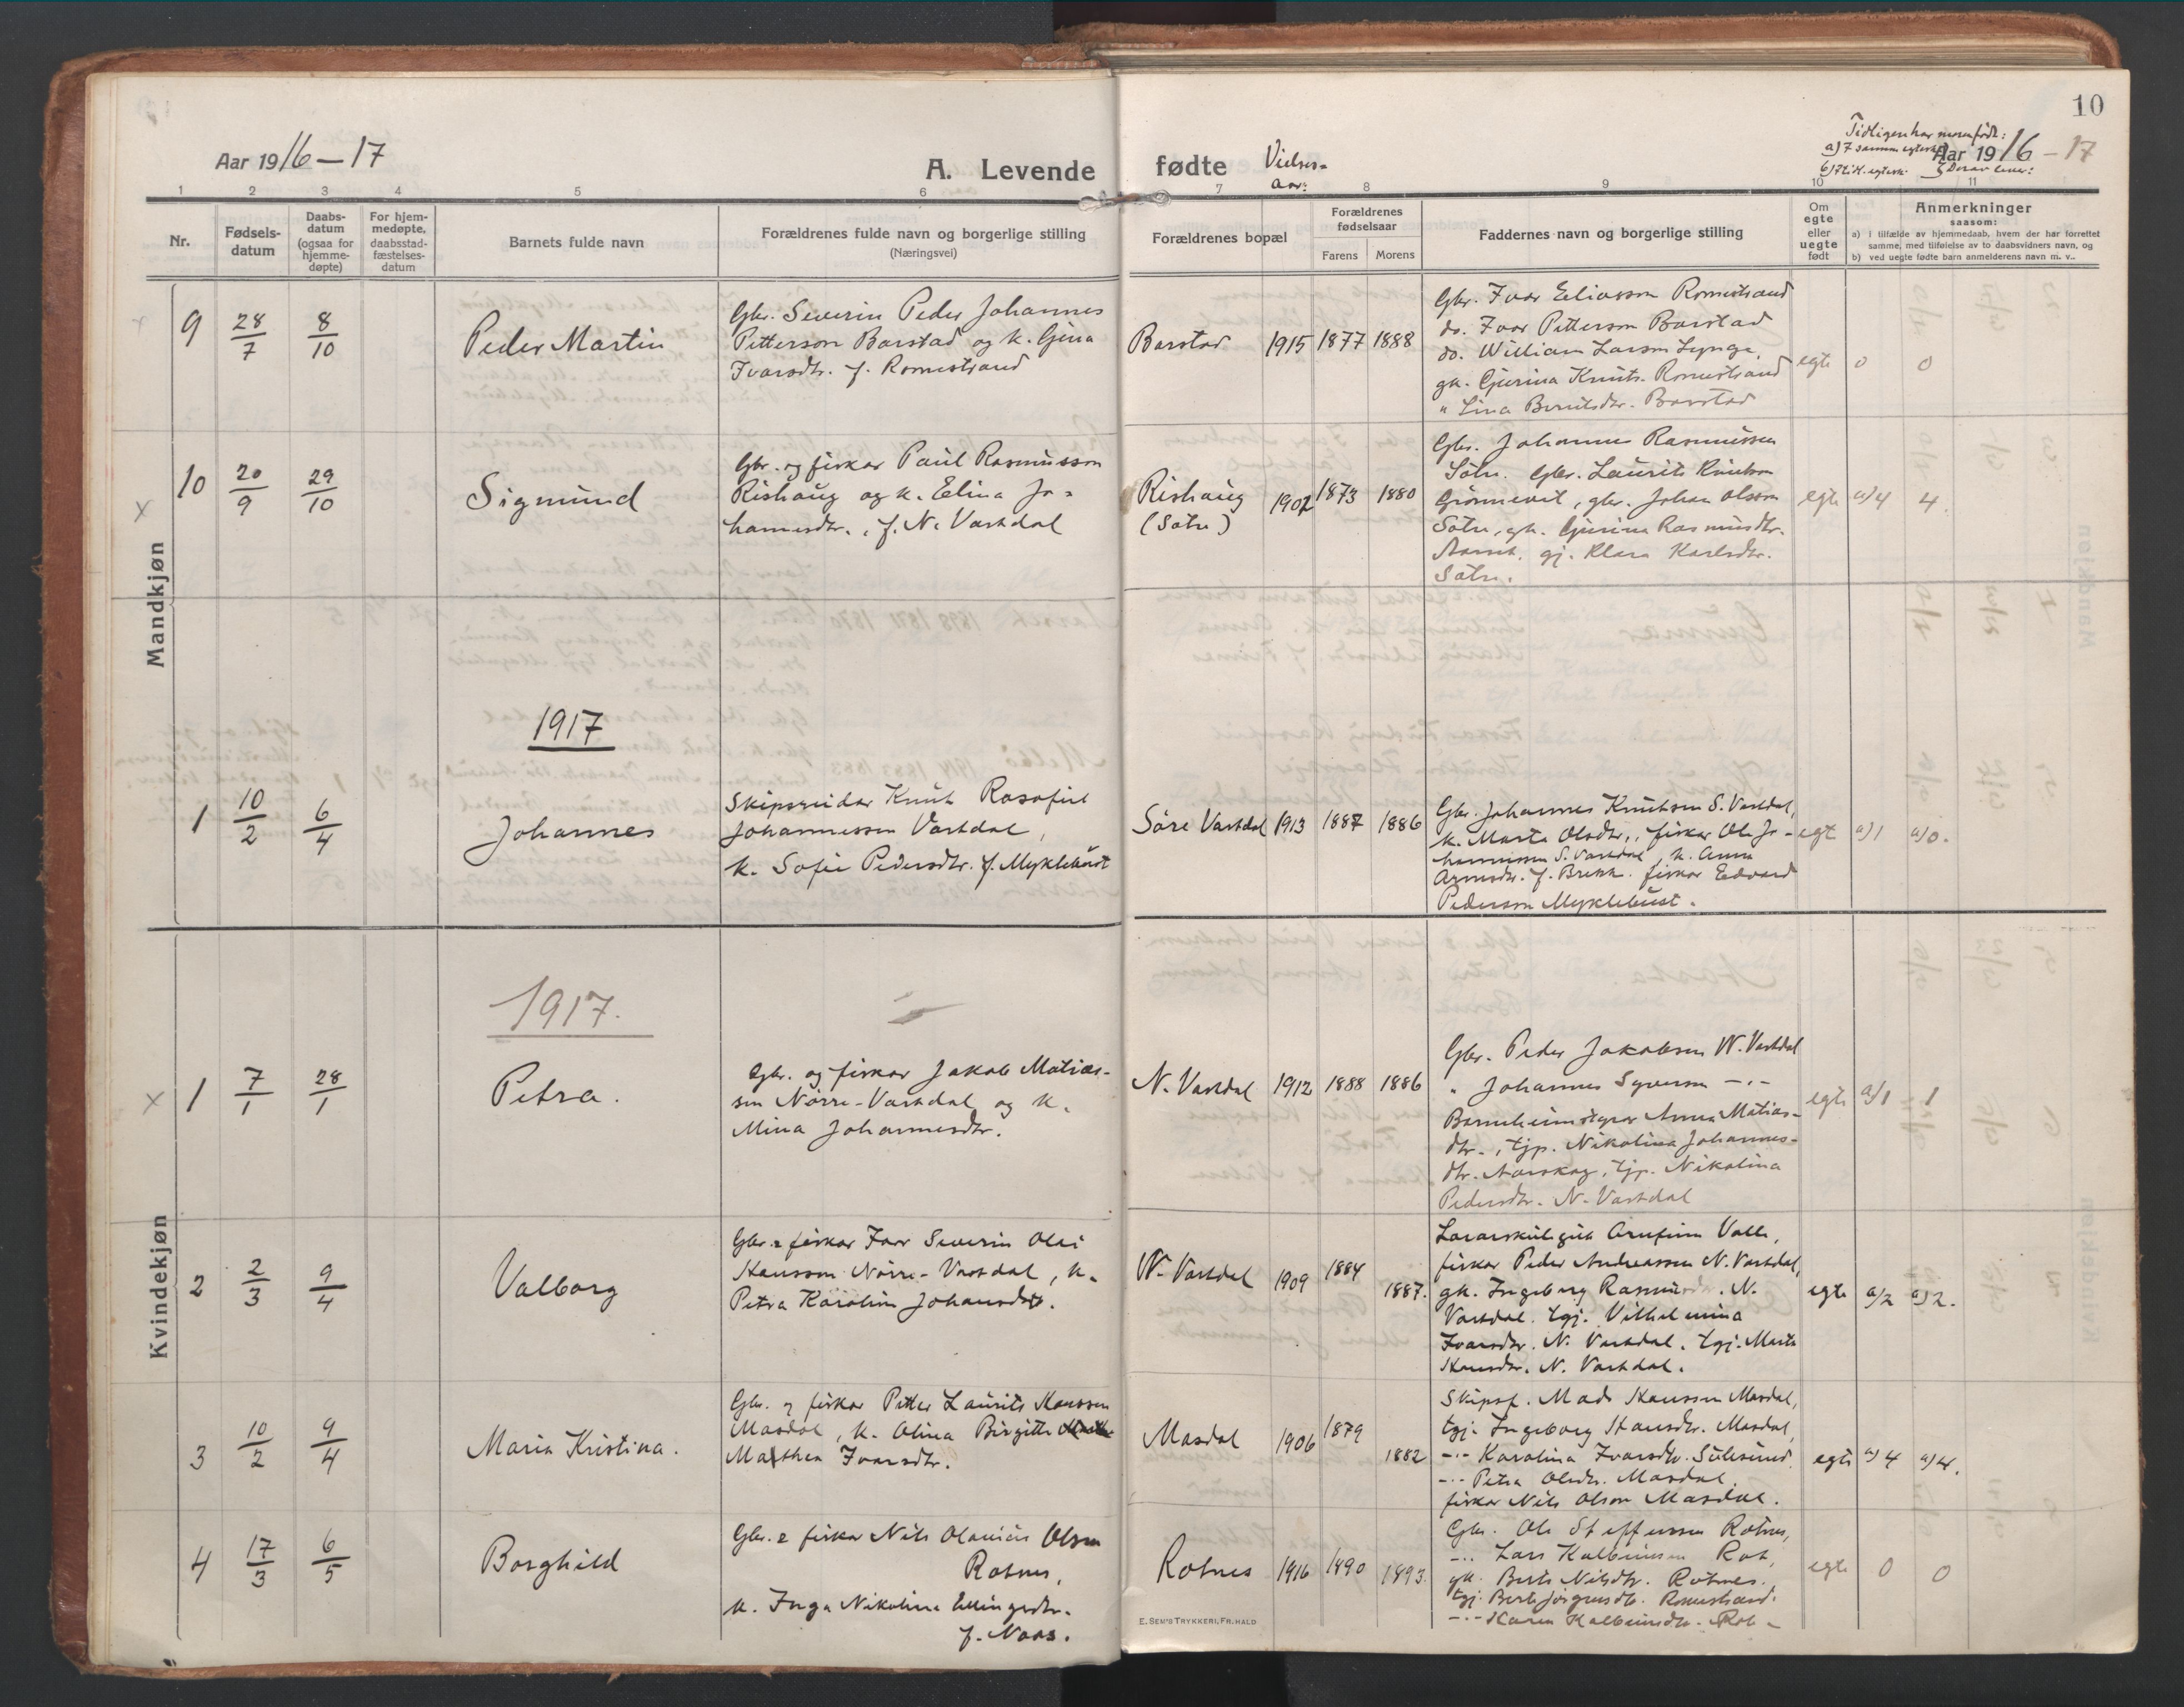 10
Aar 1916 — 17
A. Levende
fødte
Vielses-
aar:
Tidligere har moren født:
a) i samme egtesk.
b) i tidl. egtesk. } Derav lever:
Aar 1916 — 17
1 2 3 4 5 6 7 8 9 10 11
Nr.
Fødsels-
datum
Daabs-
datum
(ogsaa for
hjemme-
døpte)
For hjem-
medøpte,
daabsstad-
fæstelses-
datum
Barnets fulde navn
Forældrenes fulde navn og borgerlige stilling
(Næringsvei)
Forældrenes bopæl
Forældrenes
fødselsaar
Farens Morens
Faddernes navn og borgerlige stilling
Om
egte
eller
uegte
født
Anmerkninger
saasom:
a) i tilfælde av hjemmedaab, hvem der har forrettet
samme, med tilføielse av to daabsvidners navn, og
b) ved uegte fødte barn anmelderens navn m. v..
Mandkjøn
9
28/7
8/10
Peder Martin
Gbr. Severin Peder Johannes
Petterson Barstad og k. Gjina
Ivarsdtr. f. Romestrand
Barstad 1915 1877 1888
Gbr. Ivar Eliasson Romestrand
do. Ivar Petterson Barstad
do. William Larsen Lynge,
gk. Gjurina Knuts. Romestrand
" Lina Berntsdtr. Barstad
egte 0 0
x
10
20/9
29/10
Sigmund
Gbr. og fiskar Paul Rasmusson
Rishaug og k. Elina Jo-
hannesdtr., f. N. Vartdal
Rishaug
(Sætre)
1902 1873 1880
Gbr. Johannes Rasmussen
Sætre. Gbr. Laurits Knutson
Grønnevet, gbr. Johan Olsson
Sætre, gk. Gjurina Rasmusdtr.
gj. Klara Karlsdtr.
Sætre.
egte a/4 4.
1917
1
10/2
6/4
Johannes
Skipsreidar Knut Rasofiel
Johannessen Vartdal,
k. Sofie Pedersdtr. f. Myklebust
Søre Vartdal 1913 1887 1886
Gbr. Johannes Knutson S. Vartdal,
k. Marta Olsdtr., fiskar Ole Jo-
hannessen S. Vartdal, k. Anna
f. Brekk. fiskar Edvard
Pederson Myklebust.
egt a)1 a)0.
Kvindekjøn
1917.
x
1
7/1
28/1
Petra.
Gbr. og fiskar Jakob Matias-
sen Nørre-Vartdal og k.
Mina Johannesdtr.
N. Vartdal 1912 1888 1886
Gbr. Peder Jakobsen N. Vartdal
" Johannes Syverson -"-
Barneheimstyrar Anna Matias-
dtr., tjp. Nikolina Johannes-
dtr. Aarskog, tjp. Nikolina
Pedersdtr. N. Vartdal
egte a/1 1
2
2/3
9/4
Valborg
Gbr. & fiskar Ivar Severin Olai
Hansson Nørre-Vartdal, k.
Petra Karolina Johansdtr.
N. Vartdal 1909 1884 1887.
Lærarskulegut Arnfinn Valle,
fiskar Peder Andreassen N. Vartdal,
gk. Ingeborg Rasmusdr. N.
Vartdal. tgj. Vilhelmina
Ivarsdtr. N. Vartdal. tgj. Marta
Hansdtr. N. Vartdal.
egte a/2 a)2.
3
10/2
9/4
Maria Kristina.
Gbr. og fiskar Petter Laurits Hanssen
Masdal, k. Olina Birgitte
Mathea Ivarsdtr.
Masdal 1906 1879 1882
Skipsf. Mads Hanssen Masdal,
tgj. Ingeborg Hansdtr. Masdal,
-"- Karolina Ivarsdtr. Sulesund
-"- Petra Olsdtr. Masdal.
fiskar Nils Olson Masdal.
egte a)4 a)4.
4
17/3
6/5
Borghild
Gbr. & fiskar Nils Olavius Olsen
Rotnes,
k. Inga Nikoline Ellingsdtr.
f. Naas.
Rotnes 1916 1890 1893.
Gbr. Ole Steffensen Rotnes,
-"- Lars Kolbeinsen Rot,
gk. Berte Nilsdtr. Rotnes.
tgj. Berte Jørgensdtr. Romestrand.
-"- Karen Kolbeinsdtr. Rot-
egte 0 0
E. SEM'S TRYKKERI, FR. HALD